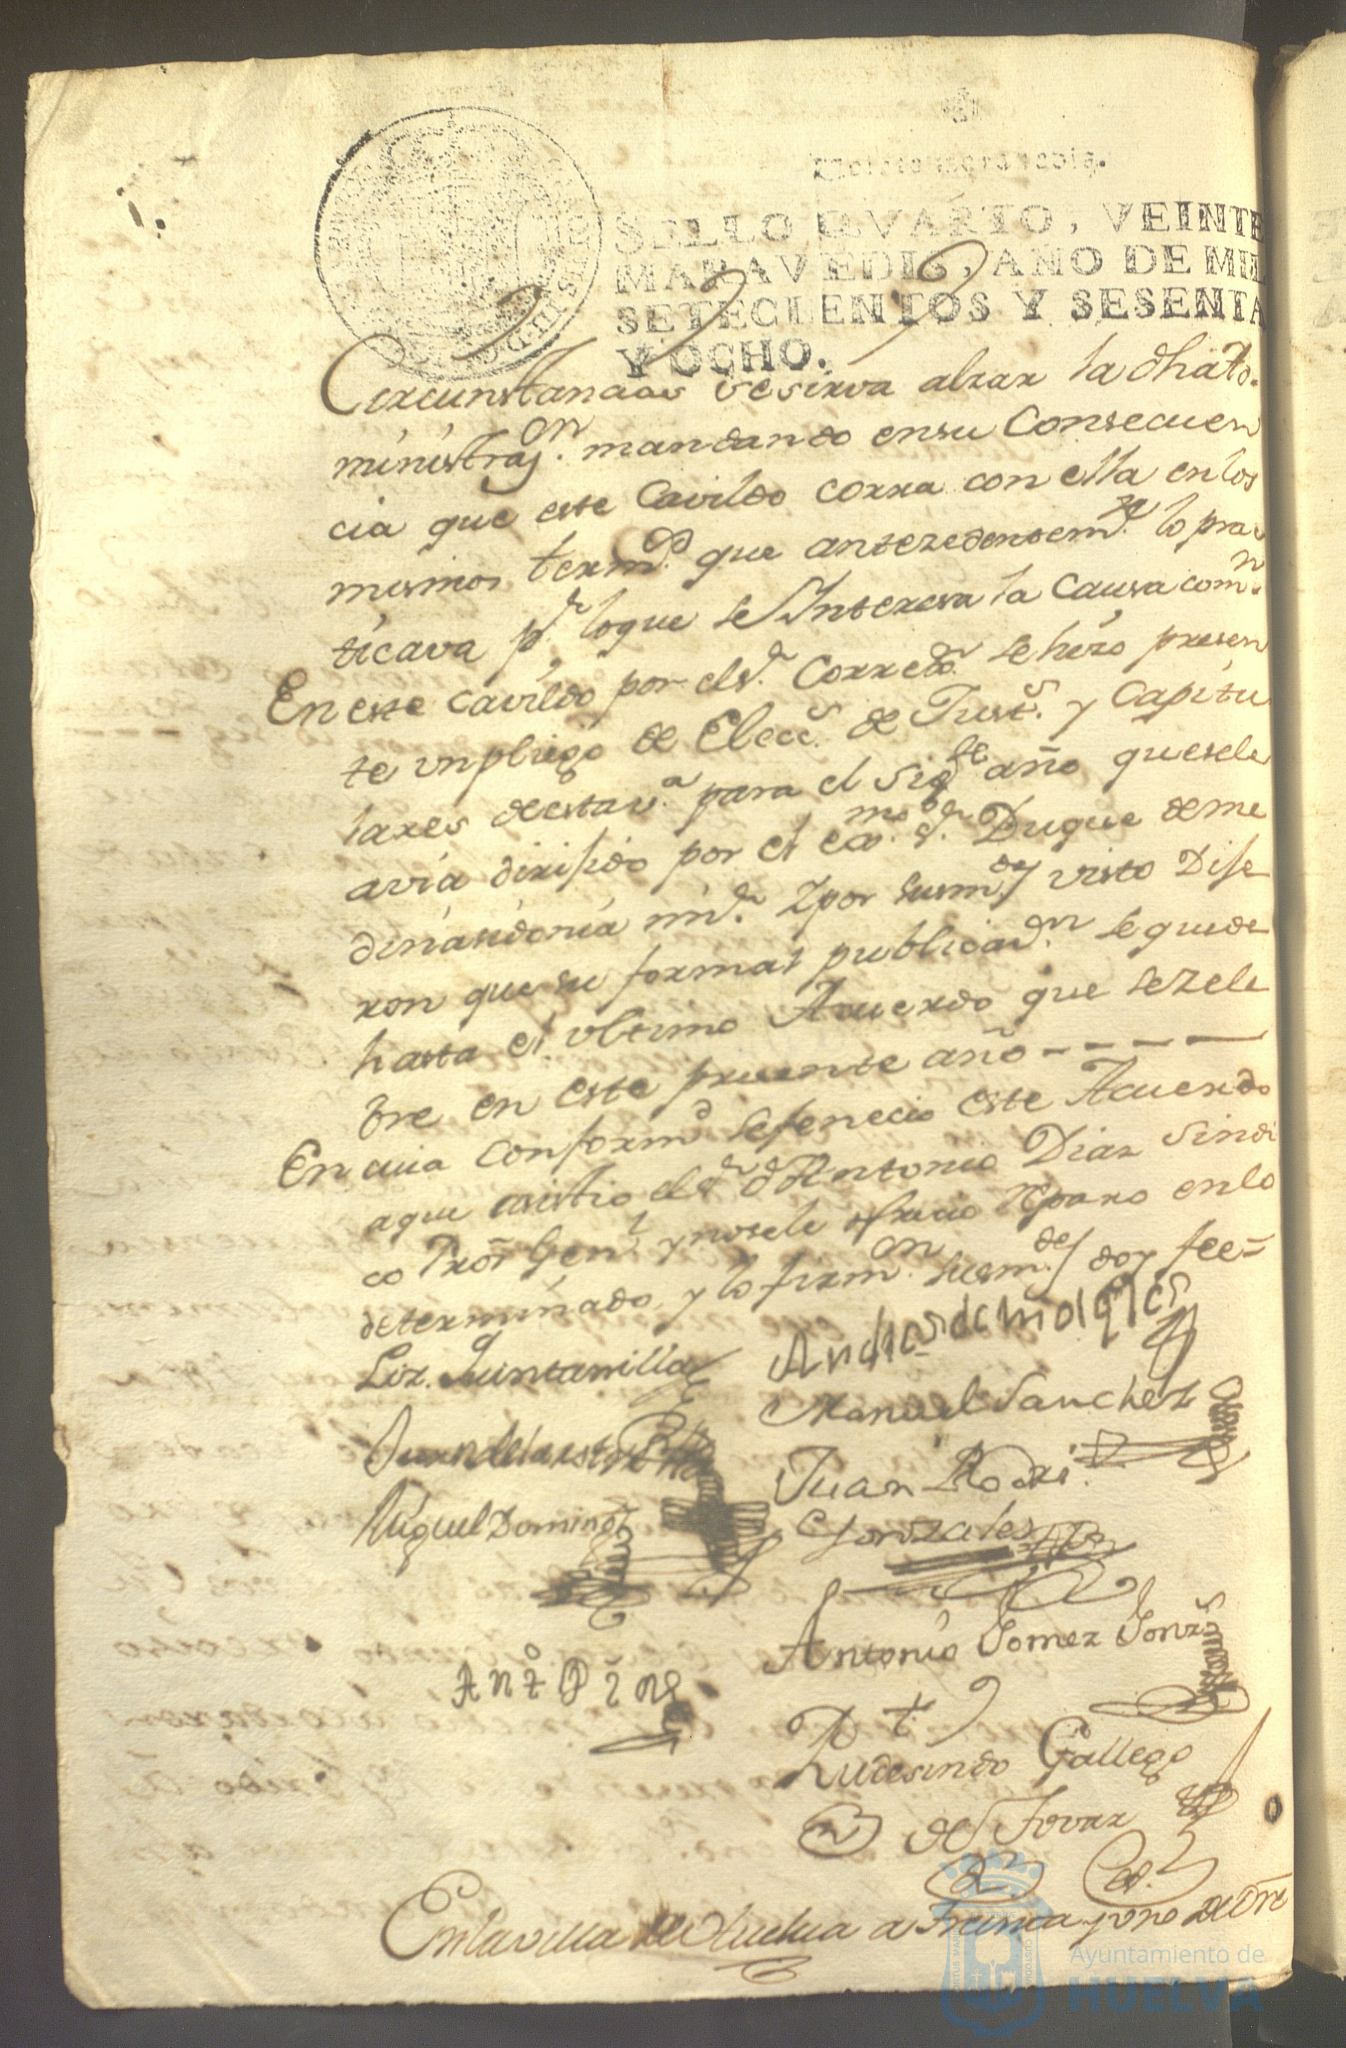 Veinte maravedis.
SELLO QVARTO, VEINTE
MARAVEDIS, AÑO DE MIL
SETECIENTOS Y SESENTA
Y OCHO.
Circunstancias se sirva alzar la dha to.
ministraz.on mandando ensu Consecuen
cia que este Cavildo corra con ella enlos
mismos term.os que antezedentem.te lo prac
ticava p.r loque se Interesa la Causa com.n
En este cavildo por els.r Corred.r se hizo presen
te vn pliego de Elecc.s de Just.s y Capitu
lares de esta v.a para el sig.te año quesele
avia dirijido por el exmo. s.r Duque de me
dinasidonia mi s.r Y por susm.des visto Dije
ron que su formal publicac.on se quede
hasta el vltimo Acuerdo que sezele
bre en este presente año - - - -
En cuia conform.d sefenecio este Acuerdo
aque asistio els.r d.n Antonio Diaz Sindi
co Pror Gen.l y nosele ofrecio Reparo enlo
determinado y lo firm.on susm.des doy fee=
Liz. Quintanilla
Andres de
Manuel Sanchez
Juan de la
Juan Rodri.
Miguel Doming.z
Gonzales
Antonio Gomez Gonz.s
Ant.o
Rudesindo Gallego
de Tovar
En la villa de Huelva a treinta y vno de
Ayuntamiento de
HUELVA